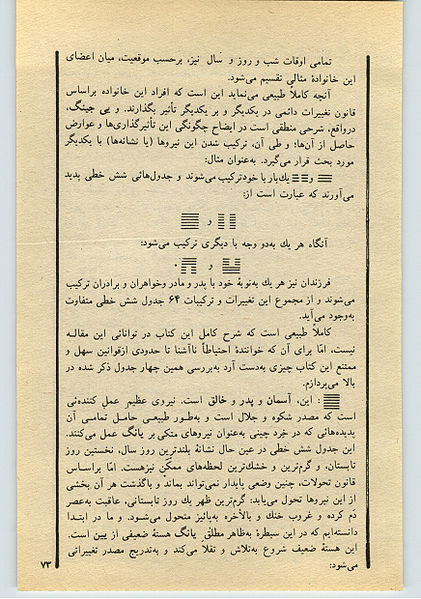 تمامی اوقات شب و روز و سال نیز، برحسب موقعیت، میان اعضای
این خانوادهٔ مثالی تقسیم می‌شود.
آنچه کاملاً طبیعی می‌نماید این است که افراد این خانواده براساس
قانون تغییرات دائمی در یکدیگر و بر یکدیگر تأثیر بگذارند. و یی جینگ،
درواقع، شرحی منطقی است در ایضاح چگونگی این تأثیرگذاری‌ها و عوارض
حاصل از آن‌ها؛ و طی آن، ترکیب شدن این نیروها (یا نشانه‌ها) با یکدیگر
مورد بحث قرار می‌گیرد. به‌عنوان مثال:
☰ و ☷ یك‌بار با خود ترکیب می‌شوند و جدول‌هائی شش خطی پدید
می‌آورند که عبارت است از:
䷀ و ䷁
آنگاه هر یك به‌دو وجه با دیگری ترکیب می‌شود:
䷋ و ䷊.
فرزندان نیز هر یك به‌نوبهٔ خود با پدر و مادر وخواهران و برادران ترکیب
می‌شوند و از مجموع این تغییرات و ترکیبات ۶۴ جدول شش خطی متفاوت
به‌وجود می‌آید.
کاملاً طبیعی است که شرح کامل این کتاب در توانائی این مقاله
نیست، امّا برای آن که خوانندهٔ احتیاطاً ناآشنا تا حدودی ازقوانین سهل و
ممتنع این کتاب چیزی به‌دست آرد به‌بررسی همین چهار جدول ذکر شده در
بالا می‌پردازم.
䷀ : این، آسمان و پدر و خالق است. نیروی عظیم عمل کننده‌ئی
است که مصدر شکوه و جلال است و به‌طور طبیعی حامل تمامی آن
پدیده‌هائی که در خِرد چینی به‌عنوان نیروهای متکی بر یانگ عمل می‌کنند.
این جدول شش خطی در عین حال نشانهٔ بلندترین روز سال، نخستین روز
تابستان، و گرم‌ترین و خشك‌ترین لحظه‌های ممکن نیزهست. امّا براساس
قانون تحولات، چنین وضعی پایدار نمی‌تواند بماند و باگذشت هر آن بخشی
از این نیروها تحول می‌یابد: گرم‌ترین ظهر یك روز تابستانی، عاقبت به‌عصر
دَم کرده و غروب خنك و بالأخره به‌پائیز متحول می‌شود. و ما در ابتدا
دانسته‌ایم که در این سیطرهٔ به‌ظاهر مطلق یانگ هستهٔ ضعیفی از یین است.
این هستهٔ ضعیف شروع به‌تلاش و تقلا می‌کند و به‌تدریج مصدر تغییراتی
می‌شود:
۷۳